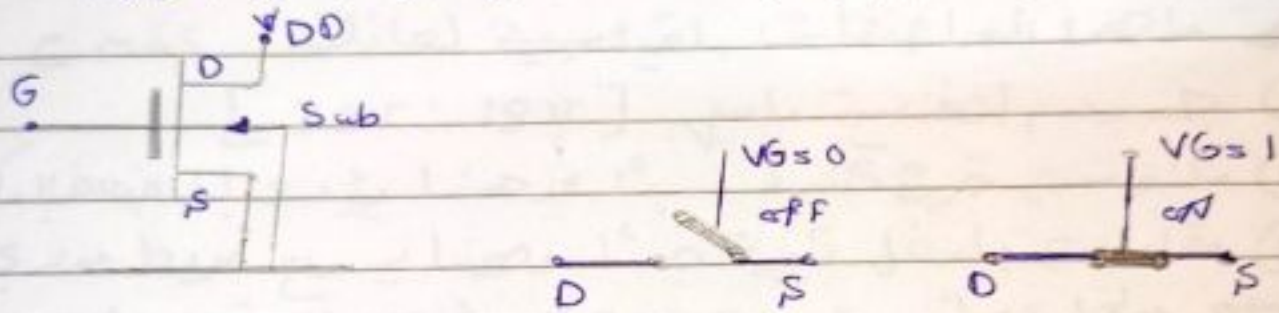 VDD
D
G
Sub
S
VG=0
off
D S
VG=1
on
D S